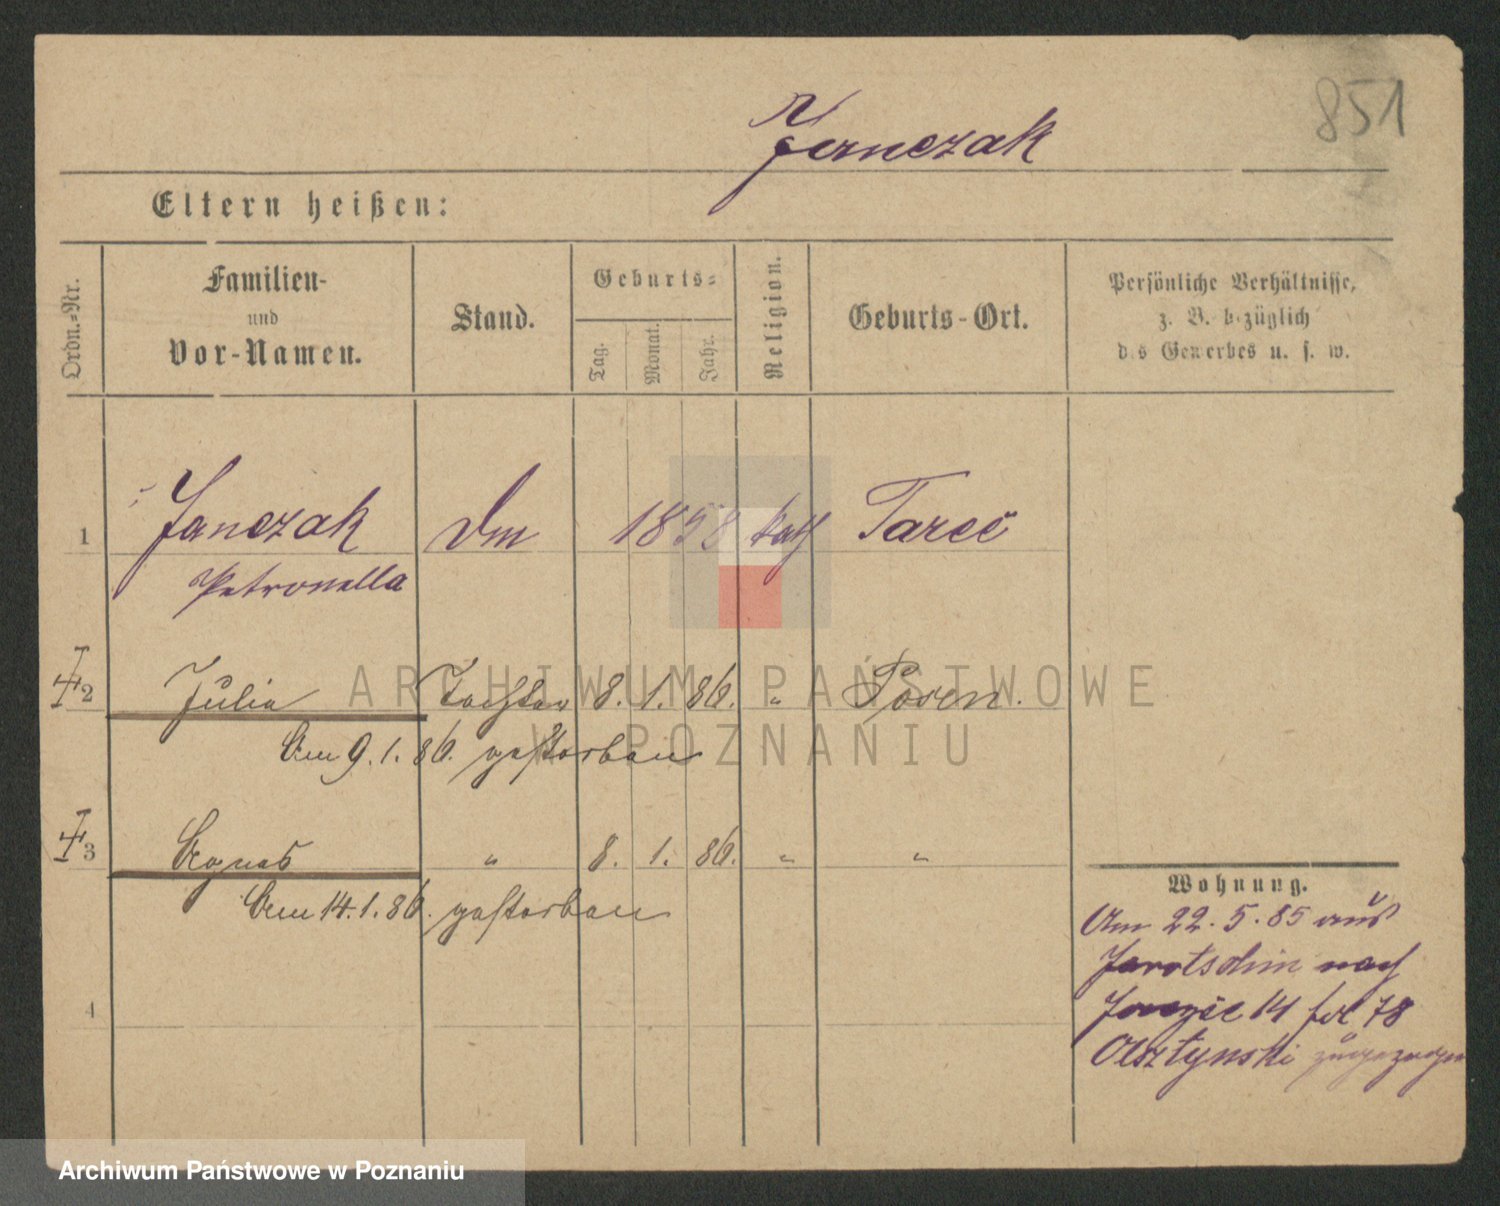 851
Janczak
Eltern heißen:
Ordn.-Nr.
Familien-
und
Vor-Namen.
Stand.
Geburts-
Tag.
Monat.
Jahr.
Religion.
Geburts-Ort.
Persönliche Verhältnisse,
z. B. bezüglich
des Gewerbes u. s. w.
1 Janczak Dm 1858 kath Tarce
Petronella
2 Julia Tochter 8. 1. 86. " Posen.
Am 9.1.86. gestorben
3 Agnes " 8. 1. 86. " "
Am 14.1.86. gestorben
4
Wohnung.
Am 22.5.85 aus
Jarotschin nach
14 78
Olsztynski zugezogen
ARCHIWUM PAŃSTWOWE
W POZNANIU
Archiwum Państwowe w Poznaniu